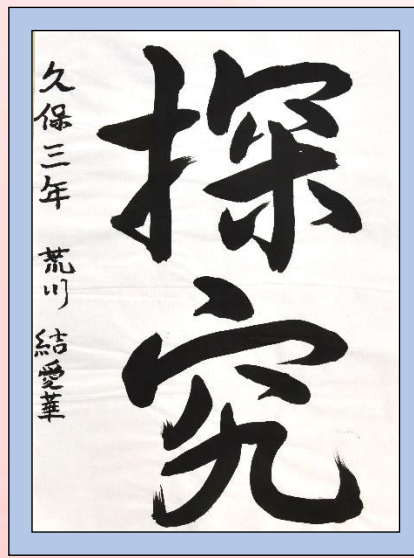 探究
久保三年 荒川 結愛華